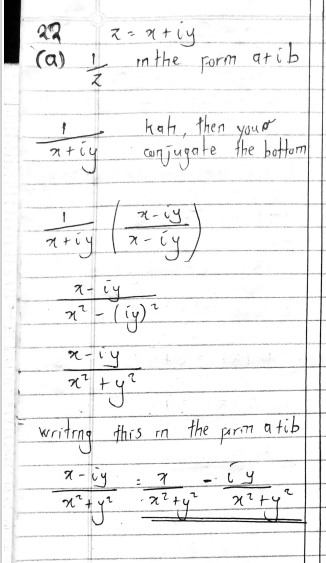 22 z = x + iy
(a) 1/z in the form a+ib
1/(x+iy) kah, then your
conjugate the bottom
1/(x+iy) ((x-iy)/(x-iy))
(x-iy)/(x² - (iy)²)
(x-iy)/(x² + y²)
writing this in the form a+ib
(x-iy)/(x²+y²) = x/(x²+y²) - iy/(x²+y²)